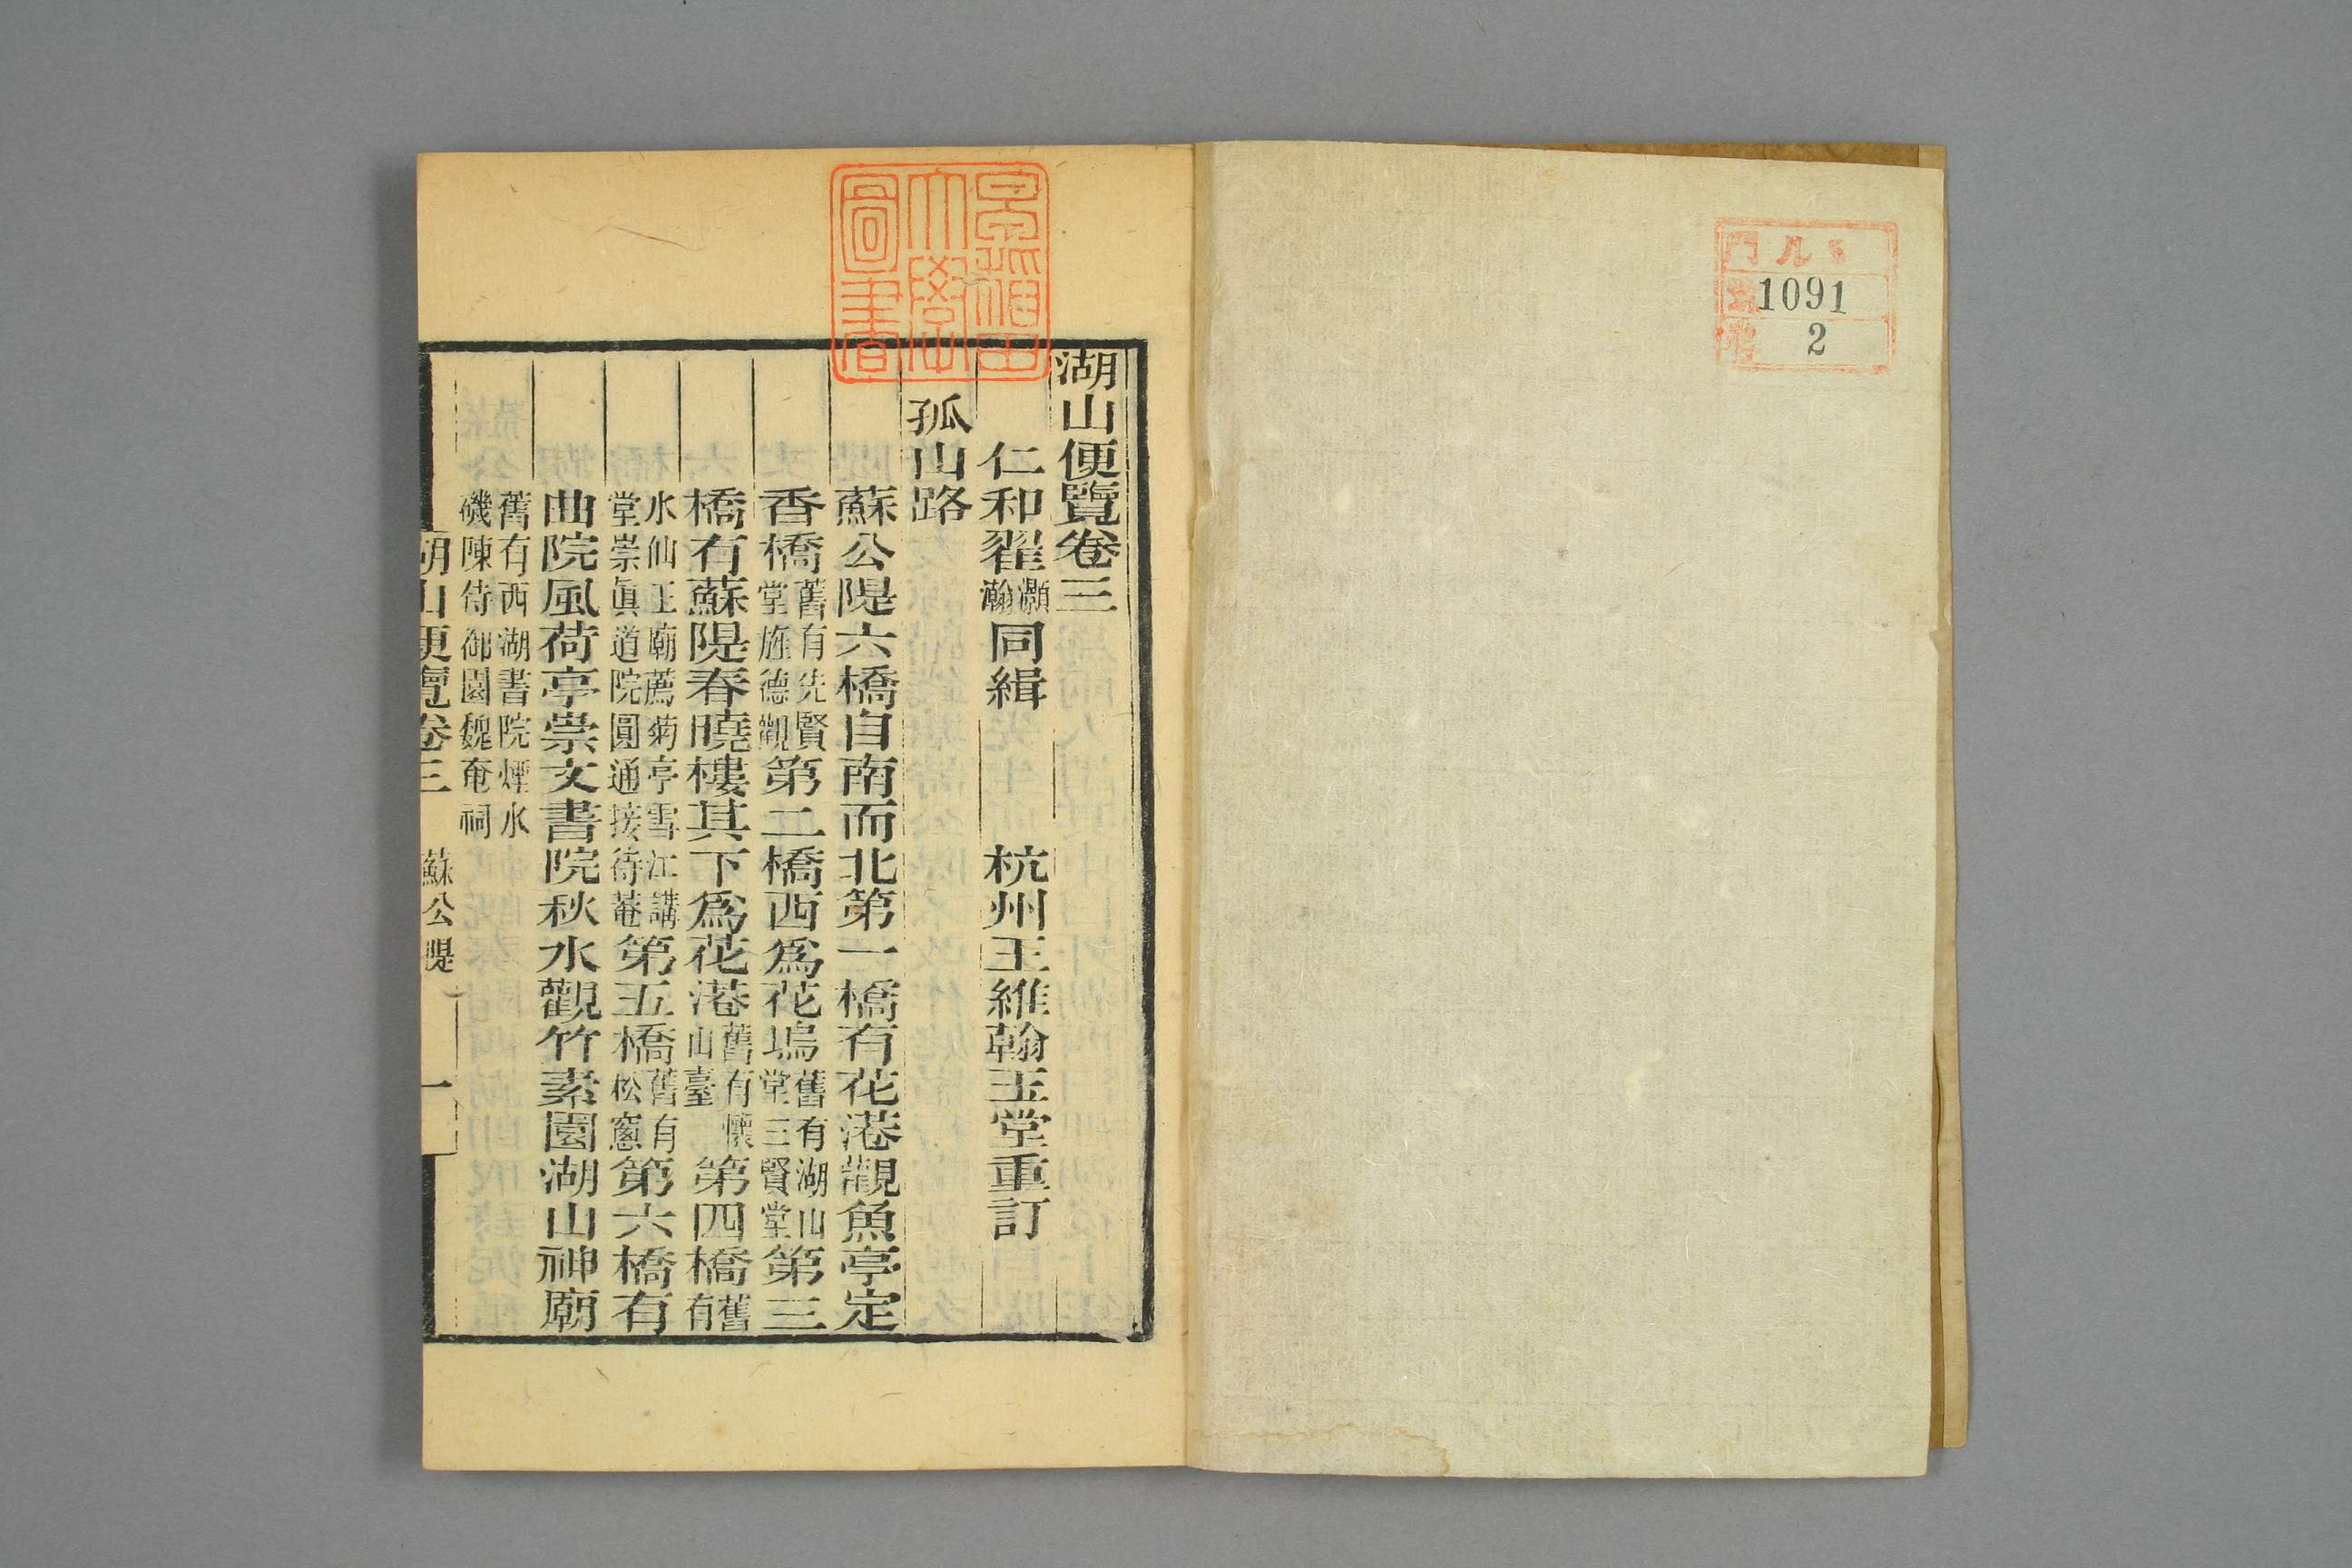 門 几
1091
2
早稲田大學圖書
湖山便覽卷三
仁和翟灝瀚同緝 杭州王維翰玉堂重訂
孤山路
蘇公隄六橋自南而北第一橋有花港觀魚亭定
香橋舊有先賢堂旌德觀第二橋西爲花塢舊有湖山堂三賢堂第三
橋有蘇隄春曉樓其下爲花港舊有懷山臺第四橋舊有
水仙王廟薦菊亭雪江講堂崇眞道院圓通接待菴第五橋舊有松窻第六橋有
曲院風荷亭崇文書院秋水觀竹素園湖山神廟
舊有西湖書院煙水磯陳侍御園魏奄祠
湖山便覽卷三 蘇公隄 一